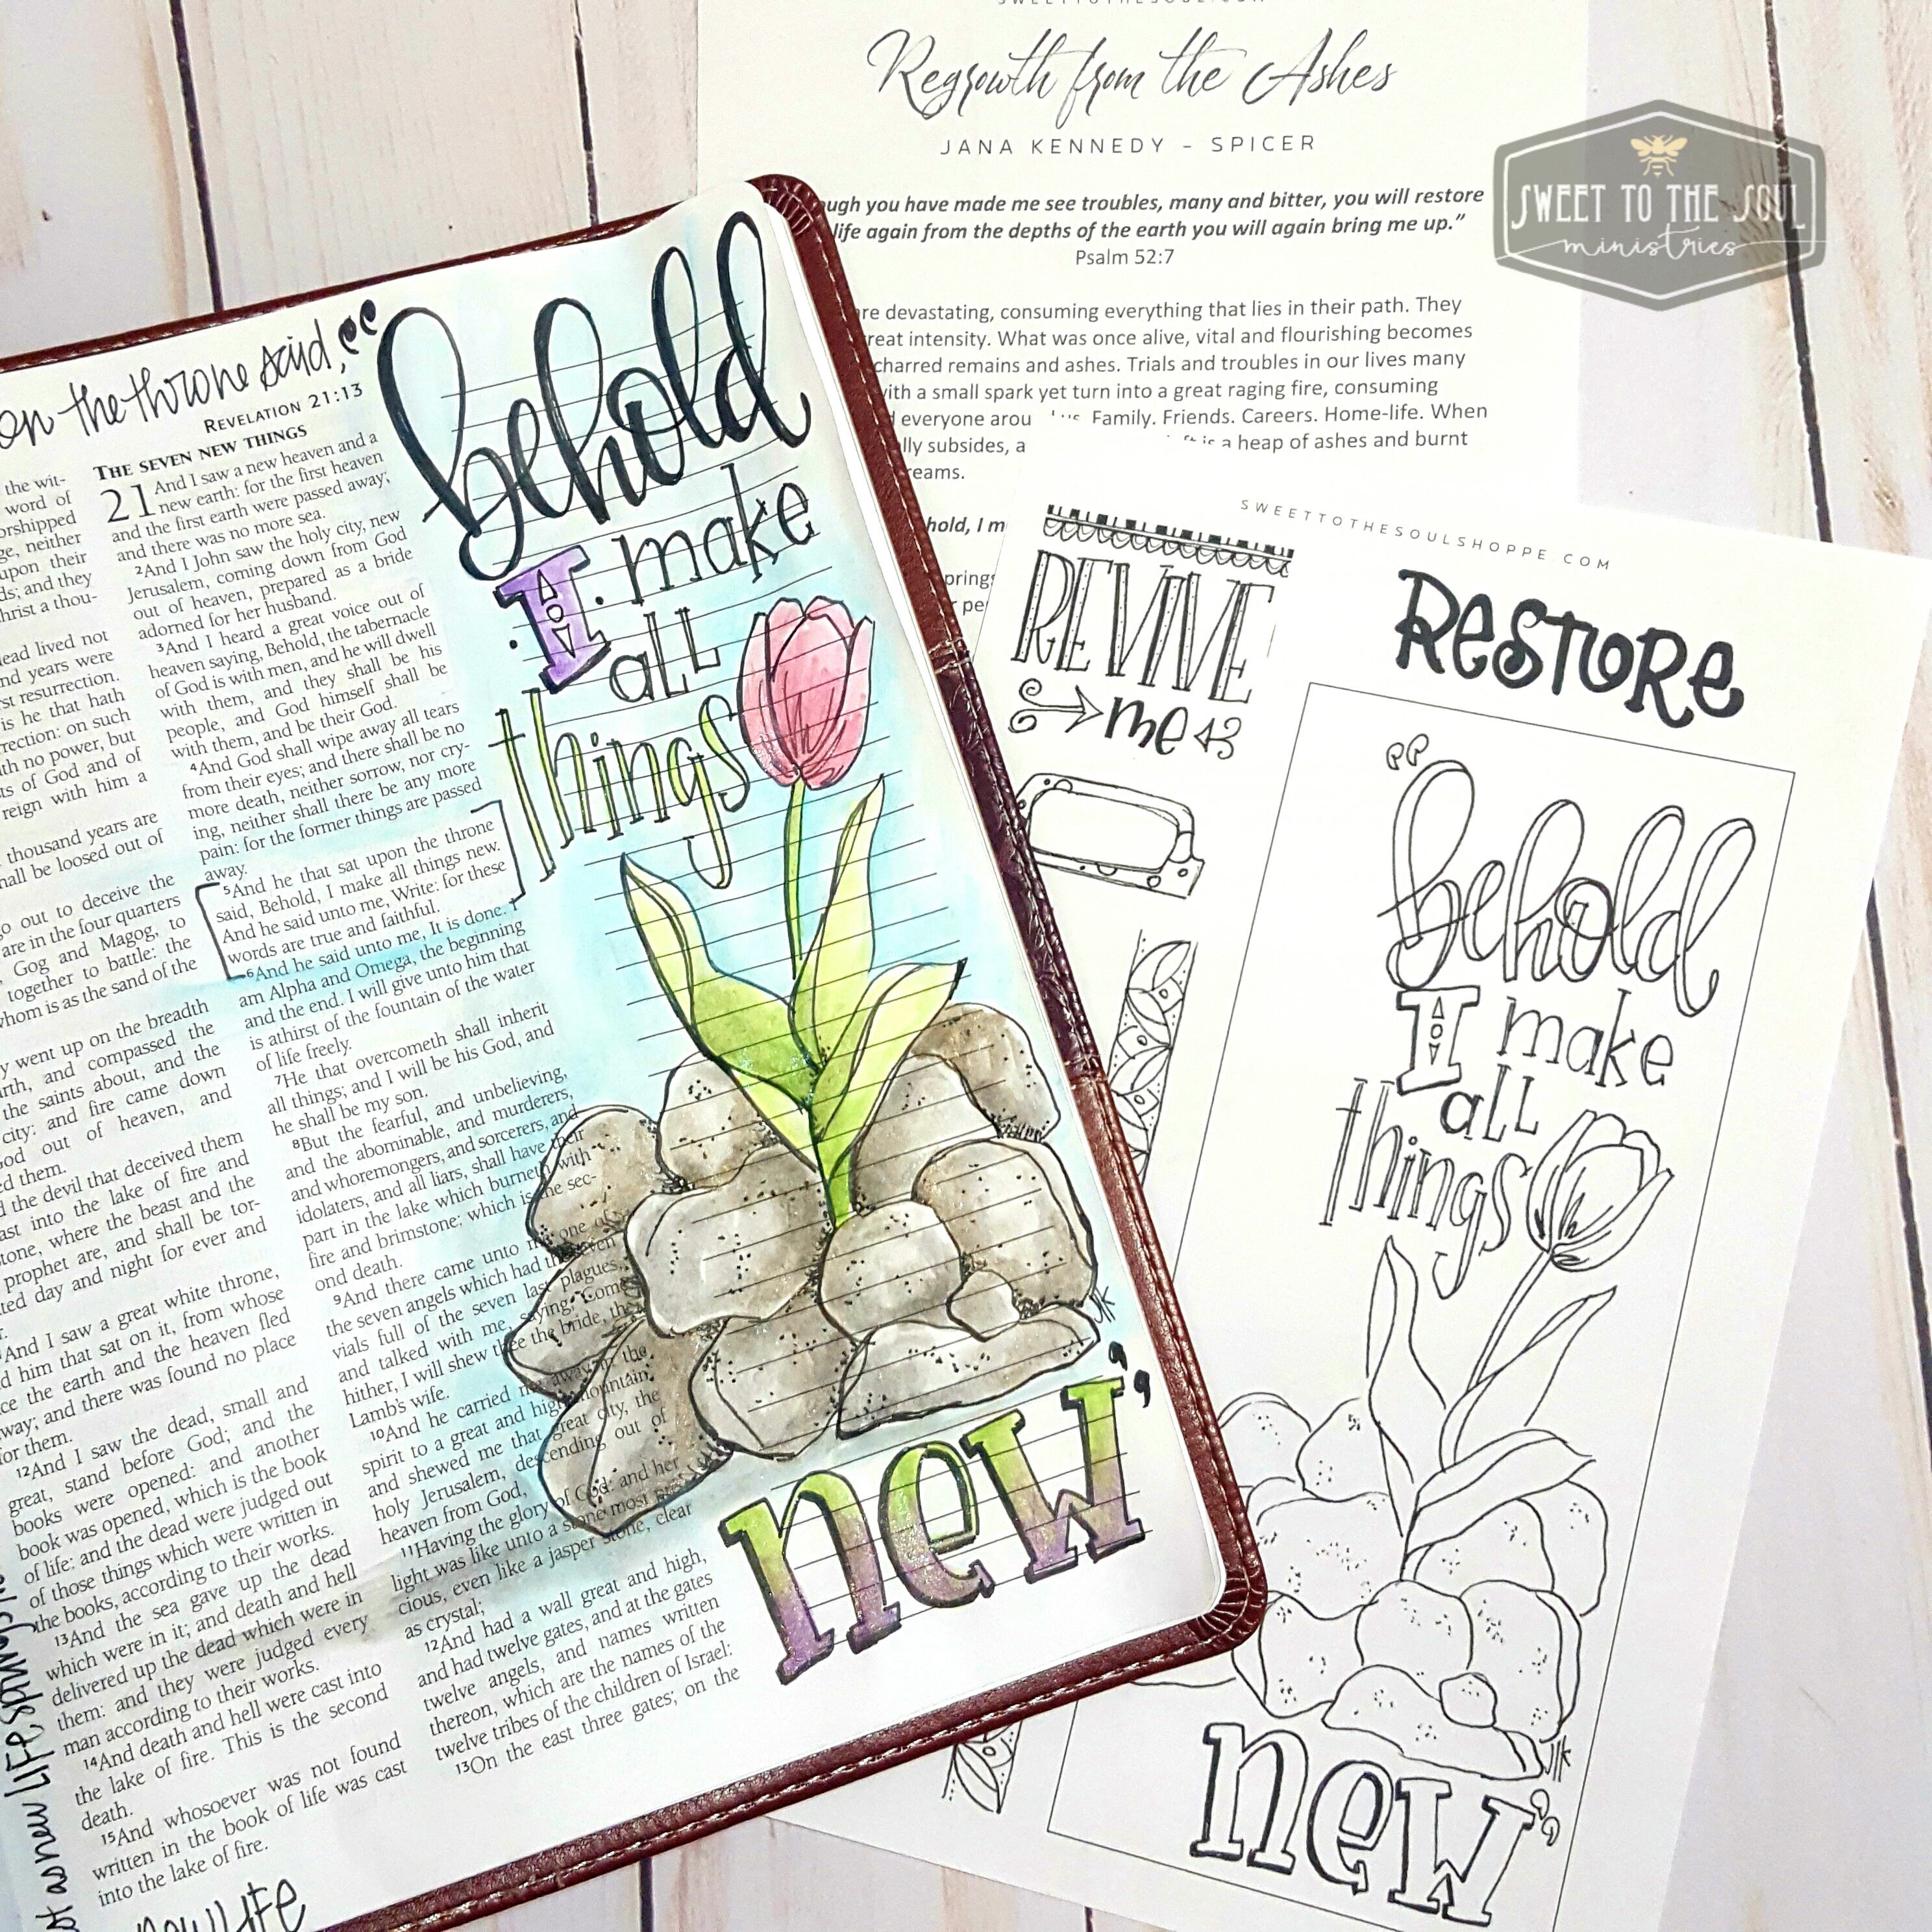 SWEETTOTHESOUL.COM
Regrowth from the Ashes
JANA KENNEDY - SPICER
you have made me see troubles, many and bitter, you will restore
life again from the depths of the earth you will again bring me up.”
Psalm 52:7
are devastating, consuming everything that lies in their path. They
great intensity. What was once alive, vital and flourishing becomes
charred remains and ashes. Trials and troubles in our lives many
with a small spark yet turn into a great raging fire, consuming
everyone Family. Friends. Careers. Home-life. When
subsides, a is a heap of ashes and burnt
SWEET TO THE SOUL
ministries
on the throne said, “
REVELATION 21:13
THE SEVEN NEW THINGS
21 And I saw a new heaven and a
new earth: for the first heaven
and the first earth were passed away;
and there was no more sea.
2And I John saw the holy city, new
Jerusalem, coming down from God
out of heaven, prepared as a bride
adorned for her husband.
3And I heard a great voice out of
heaven saying, Behold, the tabernacle
of God is with men, and he will dwell
with them, and they shall be his
people, and God himself shall be
with them, and be their God.
4And God shall wipe away all tears
from their eyes; and there shall be no
more death, neither sorrow, nor cry-
ing, neither shall there be any more
pain: for the former things are passed
away.
5And he that sat upon the throne
said, Behold, I make all things new.
And he said unto me, Write: for these
words are true and faithful.
6And he said unto me, It is done. I
am Alpha and Omega, the beginning
and the end. I will give unto him that
is athirst of the fountain of the water
of life freely.
7He that overcometh shall inherit
all things; and I will be his God, and
he shall be my son.
8But the fearful, and unbelieving,
and the abominable, and murderers,
and whoremongers, and sorcerers, and
idolaters, and all liars, shall have their
part in the lake which burneth with
fire and brimstone: which is the sec-
ond death.
9And there came unto me one of
the seven angels which had the seven
vials full of the seven last plagues,
and talked with me, saying, Come
hither, I will shew thee the bride, the
Lamb's wife.
10And he carried me away in the
spirit to a great and high mountain,
and shewed me that great city, the
holy Jerusalem, descending out of
heaven from God,
11Having the glory of God: and her
light was like unto a stone most pre-
cious, even like a jasper stone, clear
as crystal;
12And had a wall great and high,
and had twelve gates, and at the gates
twelve angels, and names written
thereon, which are the names of the
twelve tribes of the children of Israel:
13On the east three gates; on the
the wit-
word of
neither
upon their
and they
lived not
years were
resurrection.
is he that hath
on such
no power, but
of God and of
reign with him a
thousand years are
be loosed out of
to deceive the
are in the four quarters
Gog and Magog, to
together to battle: the
whom is as the sand of the
went up on the breadth
and compassed the
the saints about, and the
city: and fire came down
out of heaven, and
them.
the devil that deceived them
into the lake of fire and
where the beast and the
prophet are, and shall be tor-
day and night for ever and
And I saw a great white throne,
him that sat on it, from whose
the earth and the heaven fled
away; and there was found no place
for them.
12And I saw the dead, small and
great, stand before God; and the
books were opened: and another
book was opened, which is the book
of life: and the dead were judged out
of those things which were written in
the books, according to their works.
13And the sea gave up the dead
which were in it; and death and hell
delivered up the dead which were in
them: and they were judged every
man according to their works.
14And death and hell were cast into
the lake of fire. This is the second
death.
15And whosoever was not found
written in the book of life was cast
into the lake of fire.
new LIFE
as new LIFE springs
behold
I make
all
things
JK
new”
SWEETTOTHESOULSHOPPE.COM
REVIVE
me
RESTORE
“behold
I make
all
things
JK
new”